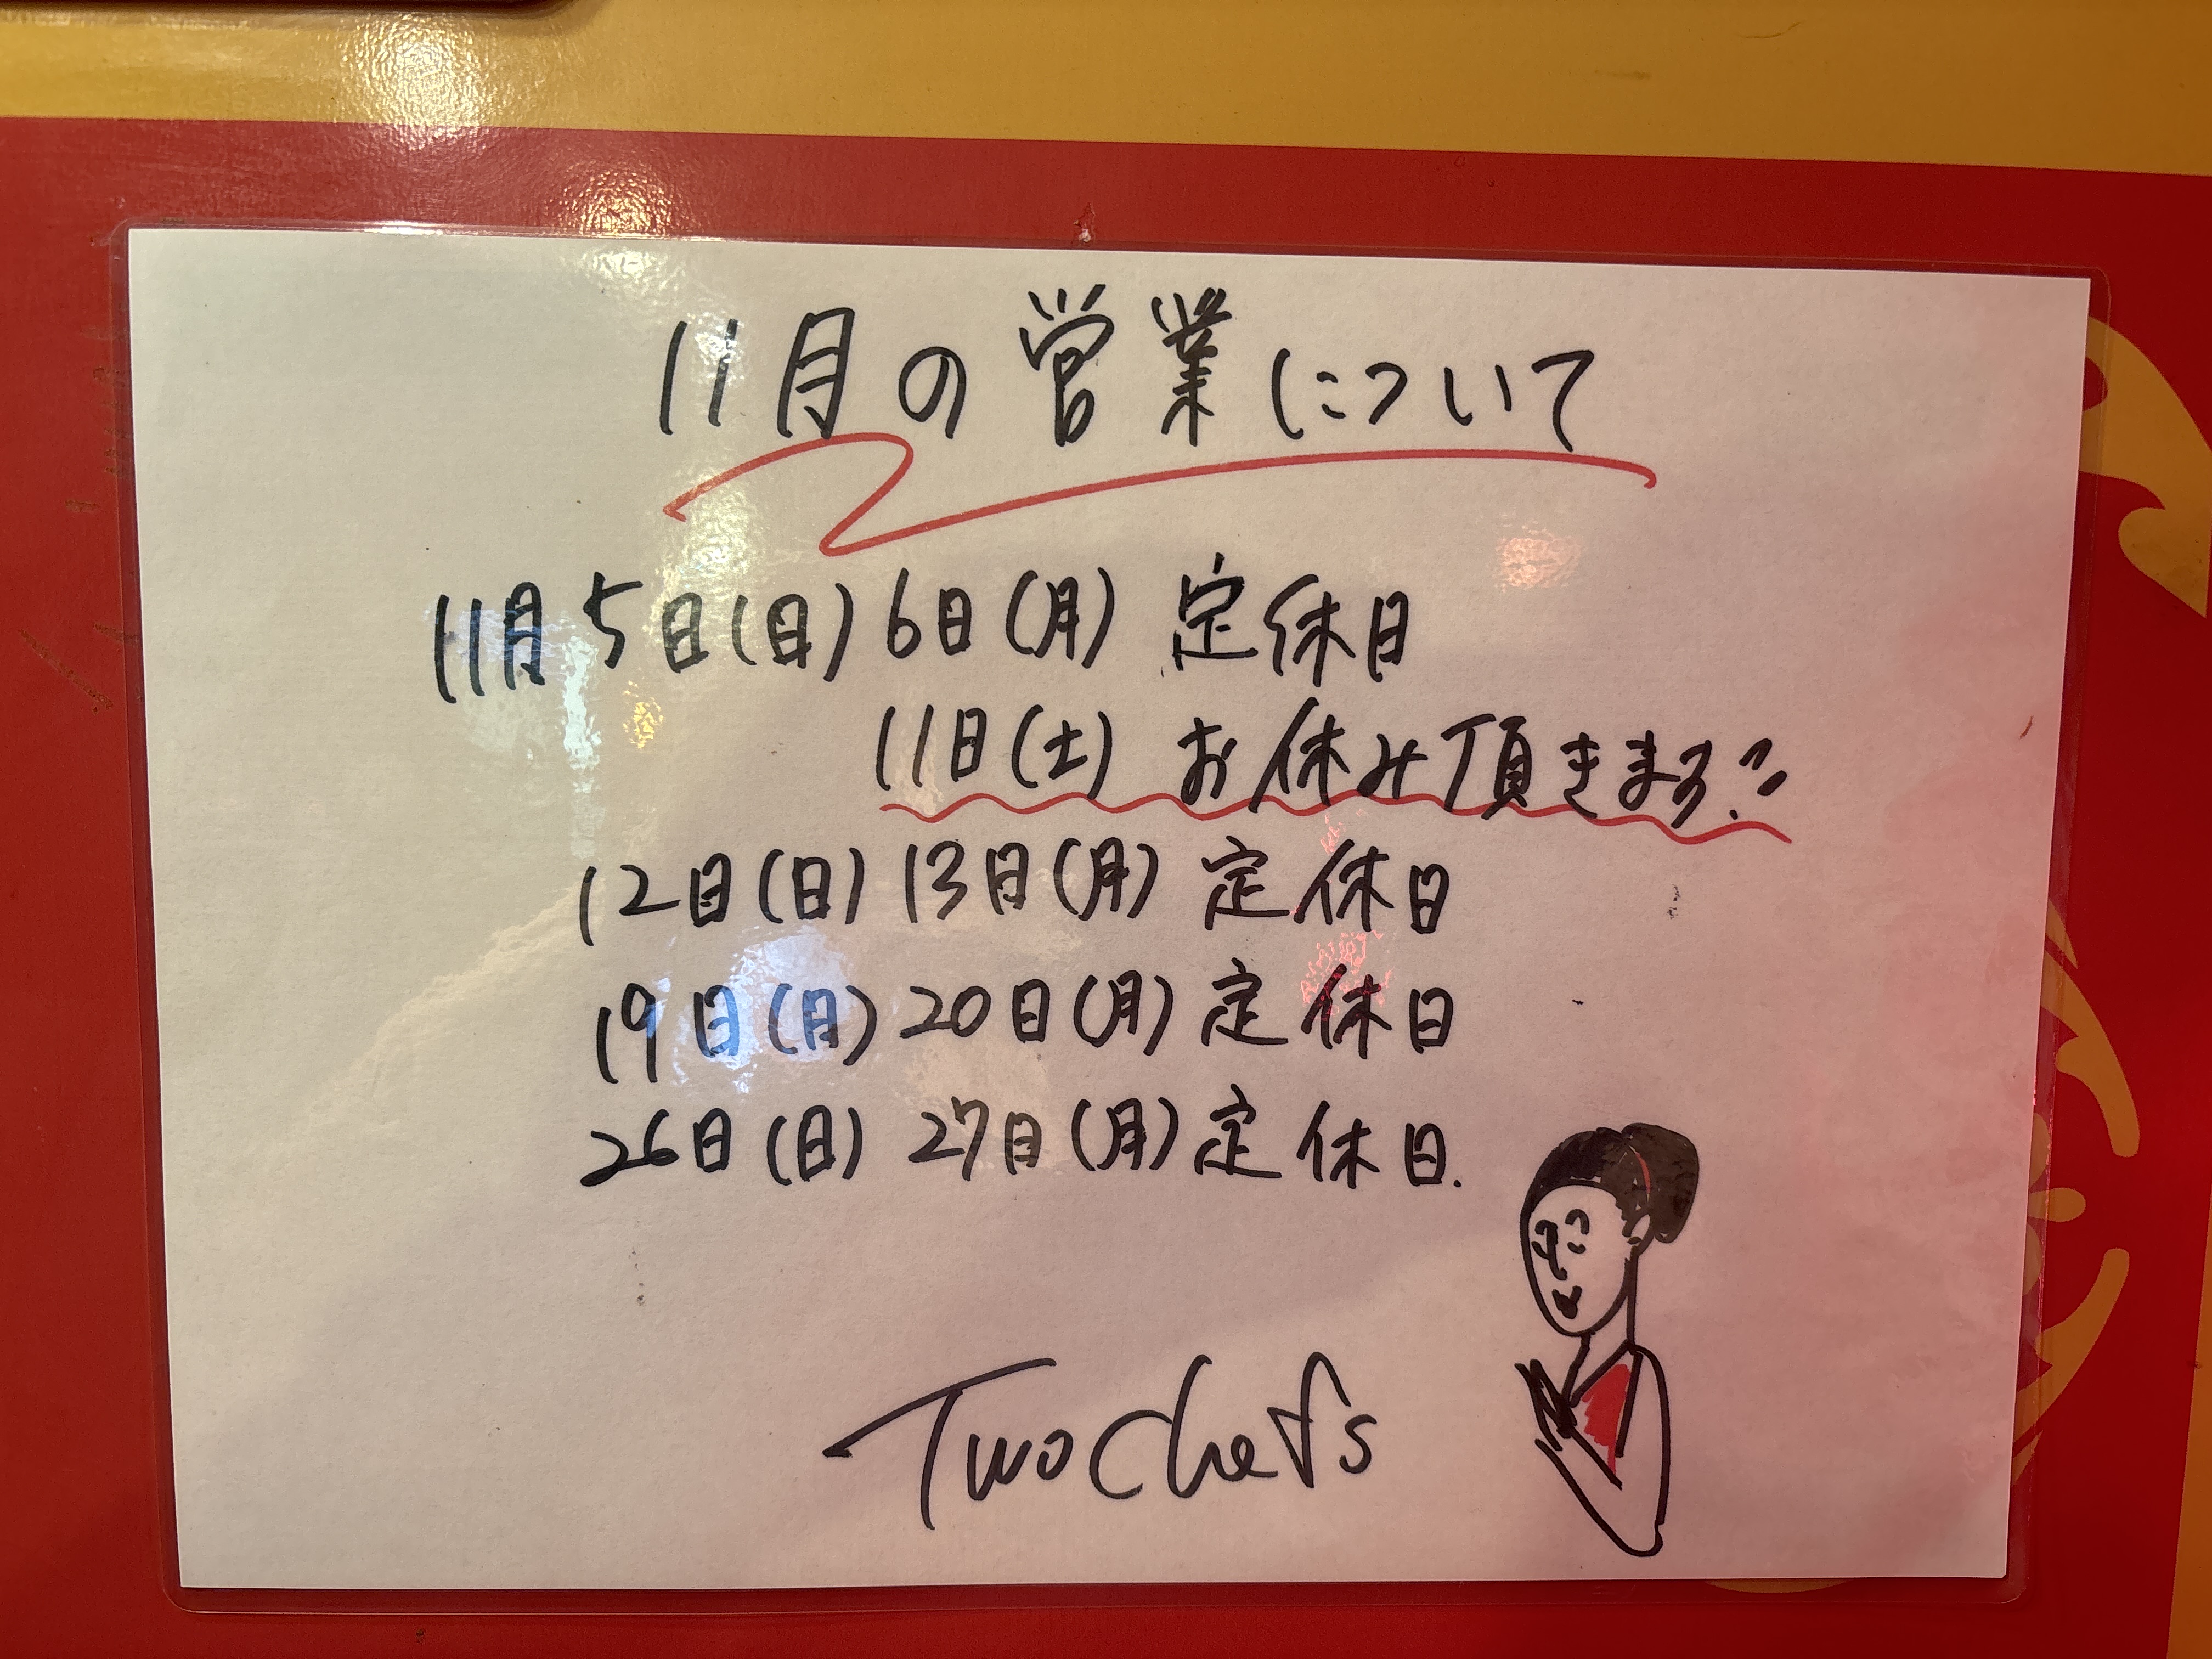 11月の営業について
11月5日(日)6日(月) 定休日
11日(土) お休み頂きます!!
12日(日)13日(月)定休日
19日(日)20日(月)定休日
26日(日)27日(月)定休日.
Two Chefs